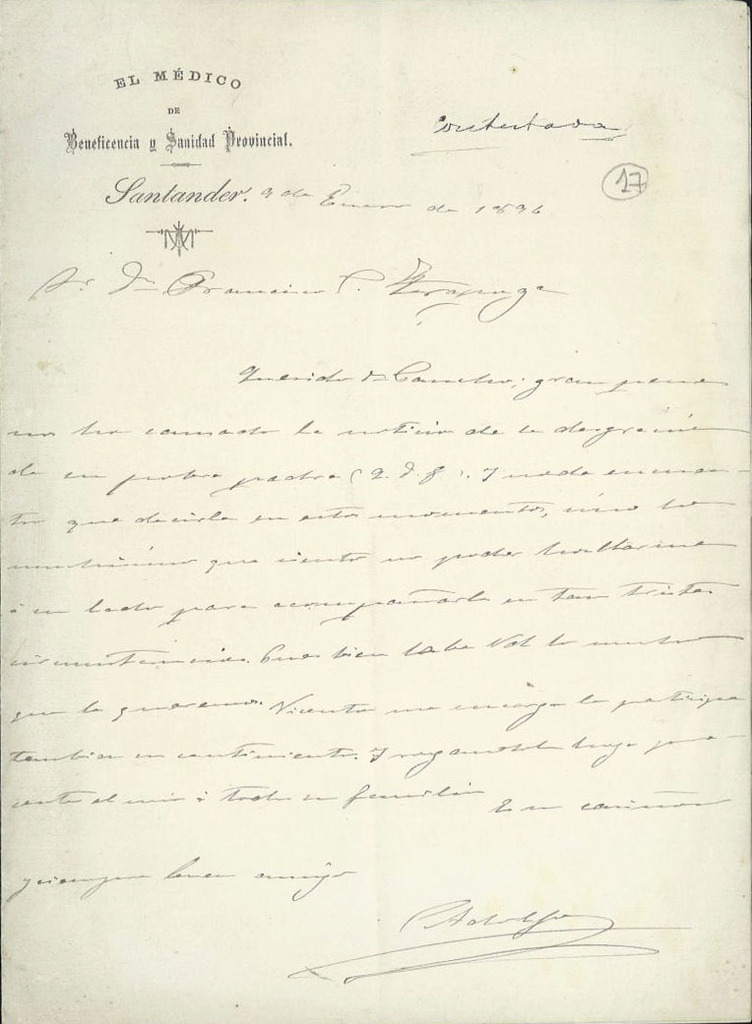 EL MÉDICO
DE
Beneficencia y Sanidad Provincial.
Contestada
17
Santander. 9 de Enero de 1896
Sr. Dn. Francisco
Querido Dn ; gran pena
nos ha causado la noticia de la desgracia
de su pobre padre (q. d. g.). Y nada encuen-
tro que decirle en estos momentos, sino lo
muchísimo que siento no poder hallarme
á su lado para acompañarle en tan tristes
circunstancias. Pues bien sabe Vd. lo mucho
que le queremos. Vicenta me encarga le participe
tambien su sentimiento. Y rogandole haga pre-
sente el mio á toda su familia
Es su cariñoso
y siempre buen amigo
Adolfo